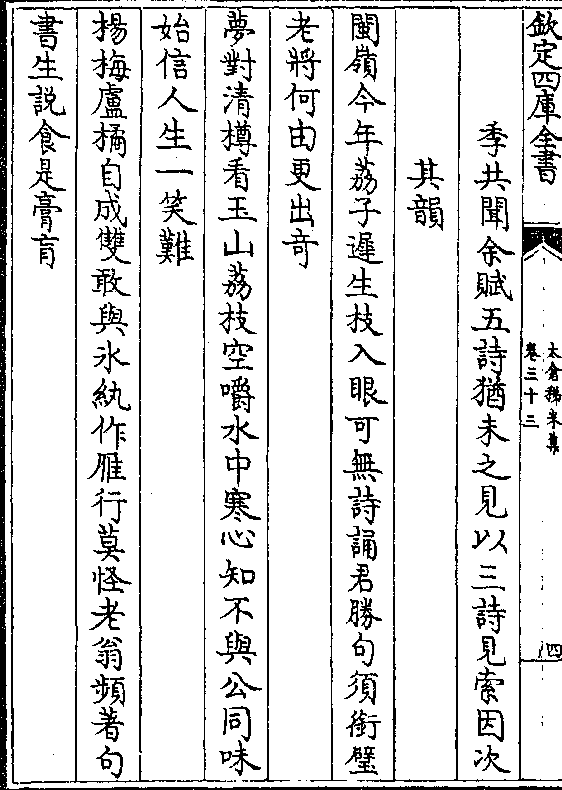 欽定四庫全書
太倉稊米集
卷三十三
四
季共聞余賦五詩猶未之見以三詩見索因次
其韻
閩嶺今年荔子遲生枝入眼可無詩誦君勝句須銜璧
老將何由更出奇
夢對清樽看玉山荔枝空嚼水中寒心知不與公同味
始信人生一笑難
楊梅盧橘自成雙敢與氷紈作雁行莫怪老翁頻著句
書生説食是膏肓